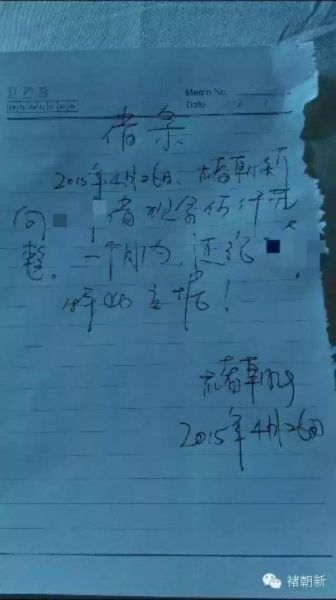 Memo No.
Date / /
借条
2015年4月26日、褚朝新
向 借现金伍仟元
整。一个月内,还给 。
特此立据!
褚朝新
2015年4月26日
褚朝新